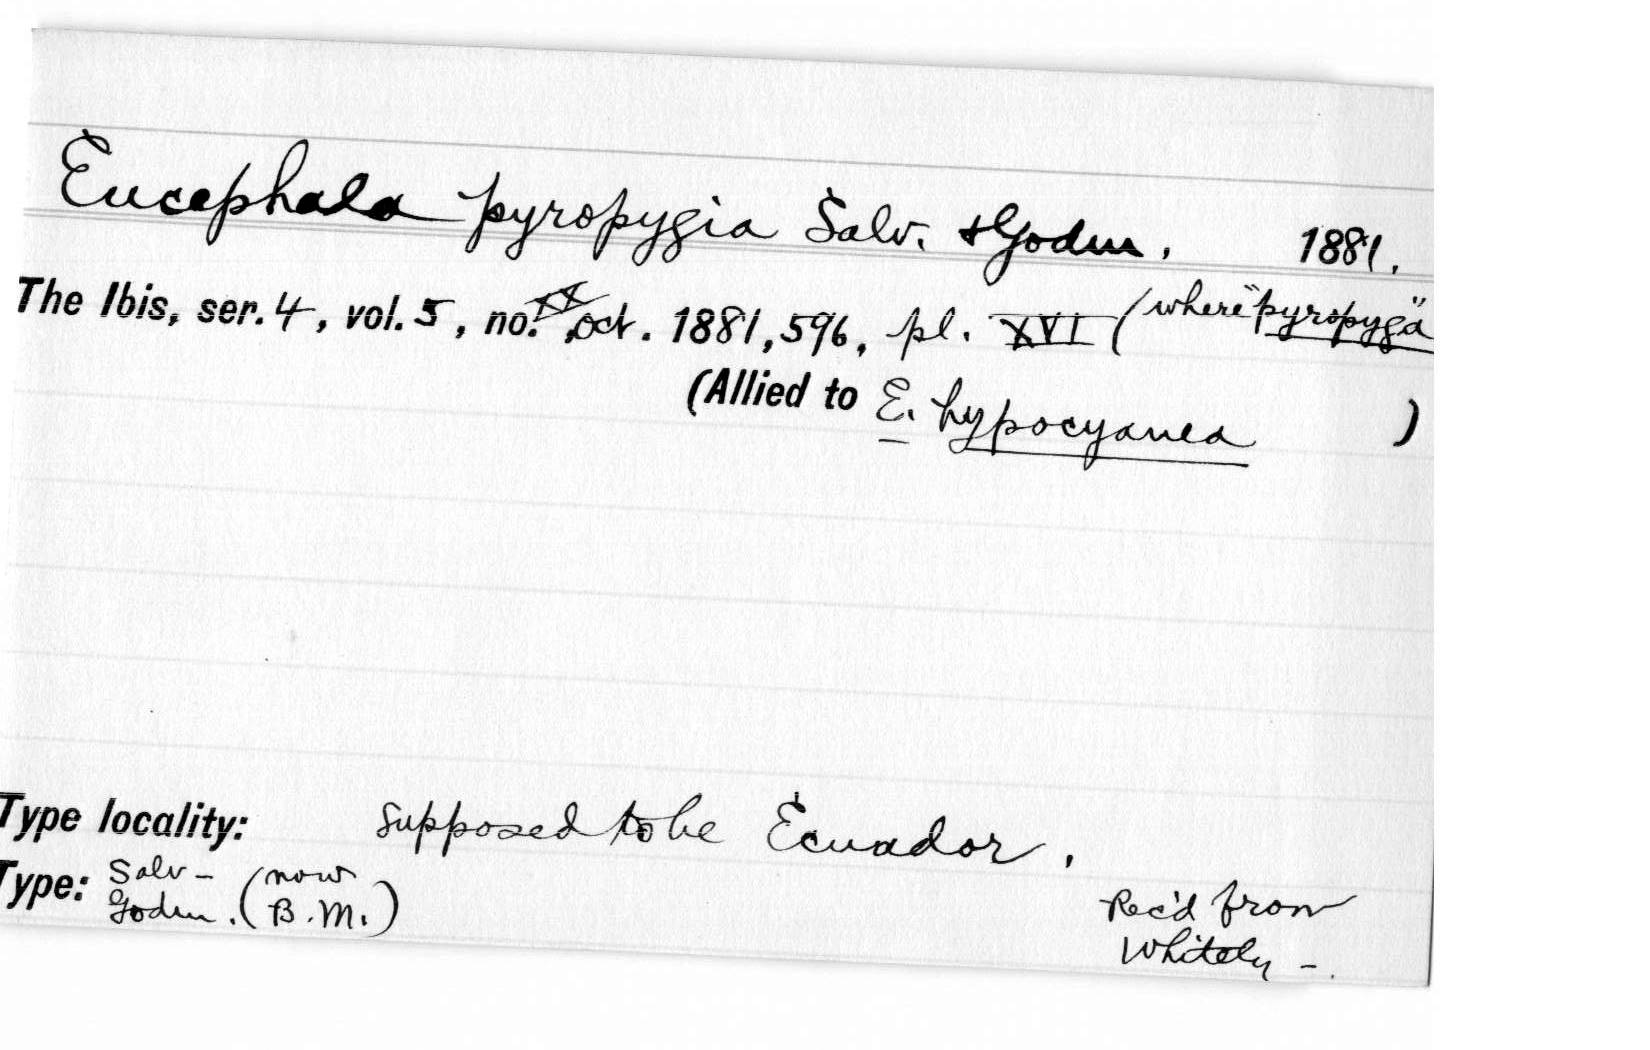 Eucephala pyropygia Salv. & Godm. 1881.
The Ibis, ser. 4, vol. 5, no. XX, Oct. 1881, 596, pl. XVI (where "pyropyga"
(Allied to E. hypocyanea )
Type locality: supposed to be Ecuador.
Type: Salv-Godm. (now B.M.)
Rec'd from
Whitely -.